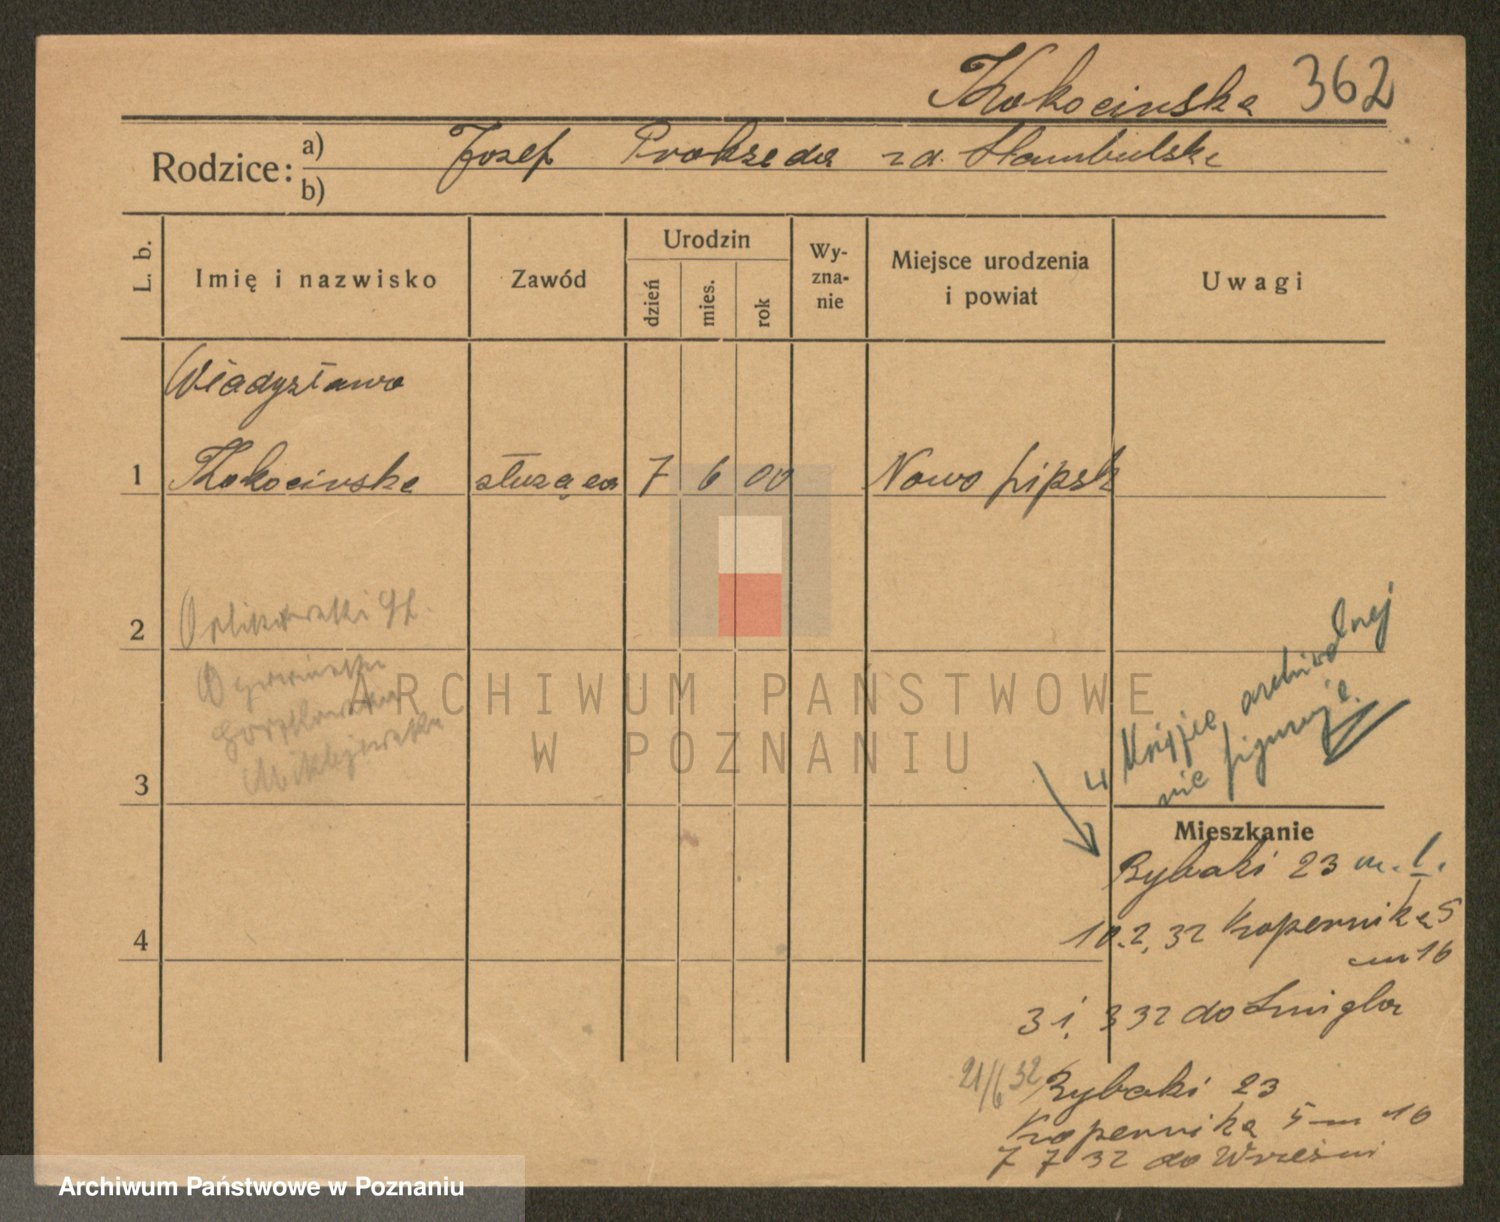 Kokocinska 362
Rodzice: a) Jozef Prakseda zd. Stambulska
b)
L. b.
Imię i nazwisko
Zawód
Urodzin
dzień
mies.
rok
Wy-
zna-
nie
Miejsce urodzenia
i powiat
Uwagi
Władysława
1 Kokocinska służąca 7 6 00 Nowo Lipsk
2
3
4
w Księjce archiwalnej
nie figuruje.
Mieszkanie
Rybaki 23 m. 1.
10.2.32 Kopernika 5
m 16
31. 3 32 do Smigla
21/6 32 Rybaki 23
Kopernika 5 m 16
7 7 32 do Wrześni
ARCHIWUM PAŃSTWOWE
W POZNANIU
Archiwum Państwowe w Poznaniu